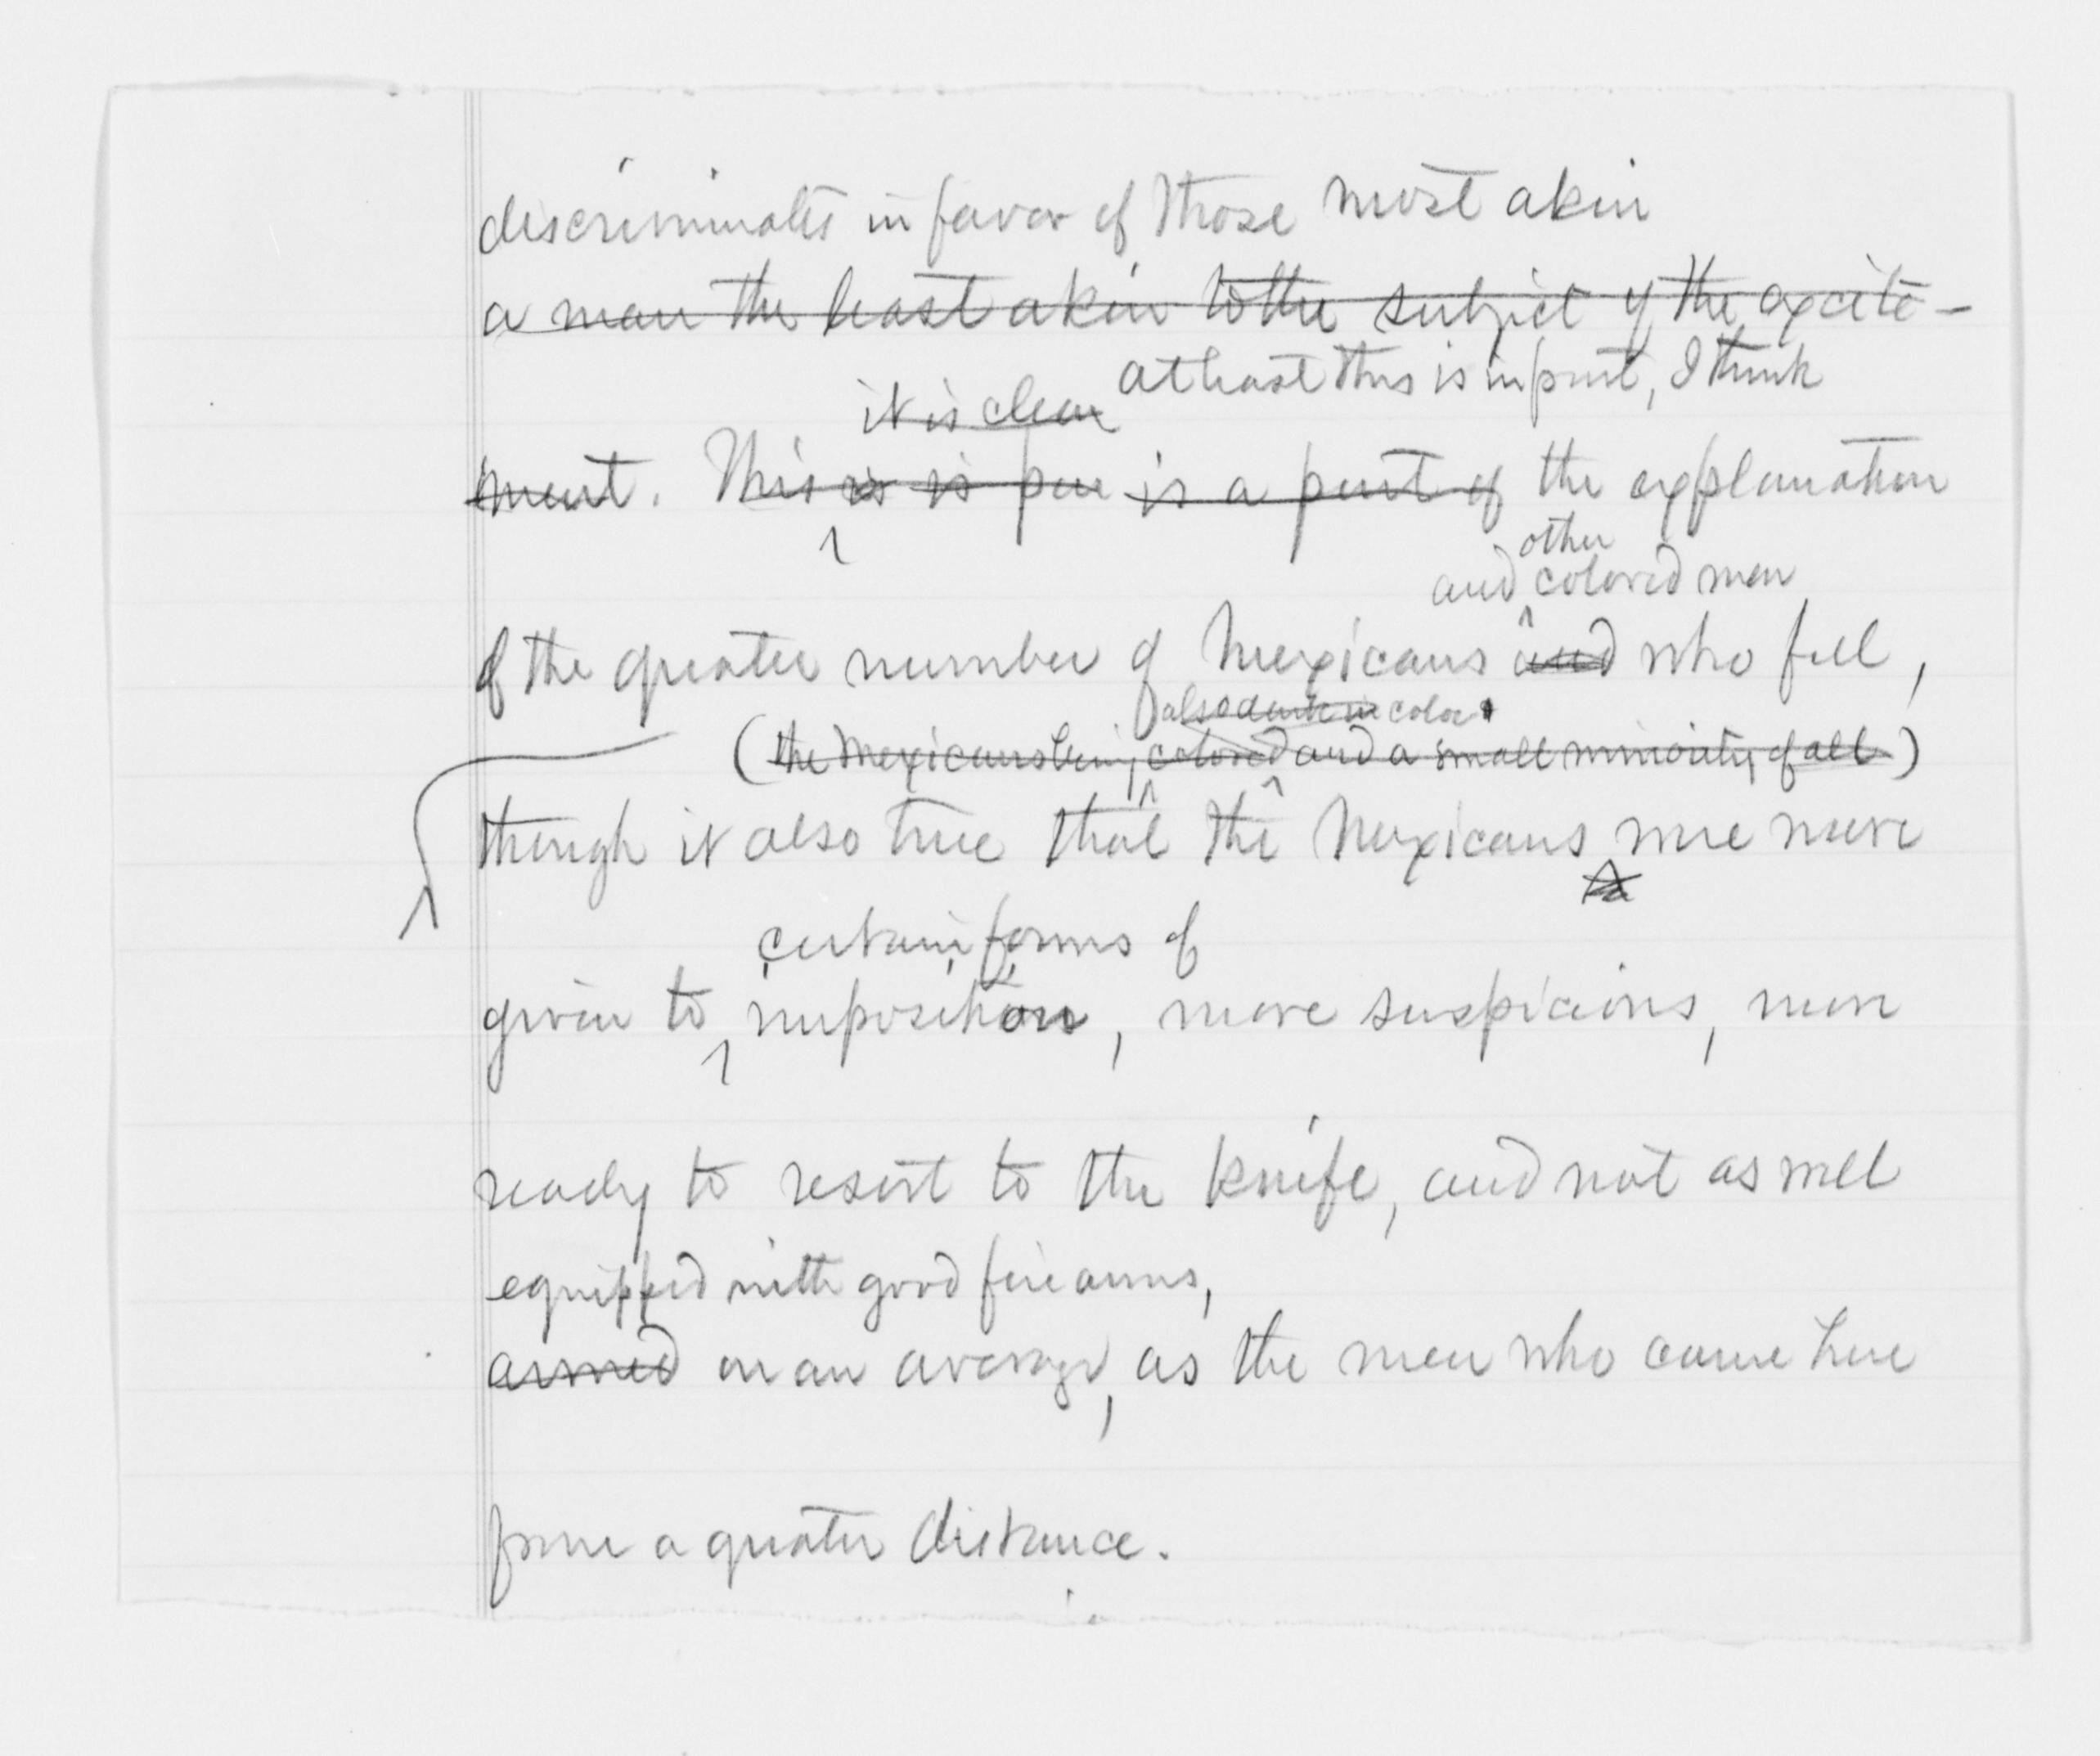 discriminates in favor of those most akin
a man the least akin to the subject of the excite-
at least this is in part, I think
it is clear
ment. This is is par is a part of the explanation
other
and colored men
of the greater number of Mexicans and who fell,
also dark in color
(the Mexicans being, colored and a small minority of all)
though it also true that the Mexicans were more
certain forms of
given to imposition, more suspicious, more
ready to resort to the knife, and not as well
equipped with good fire arms,
armed on an average, as the men who came here
from a greater distance.